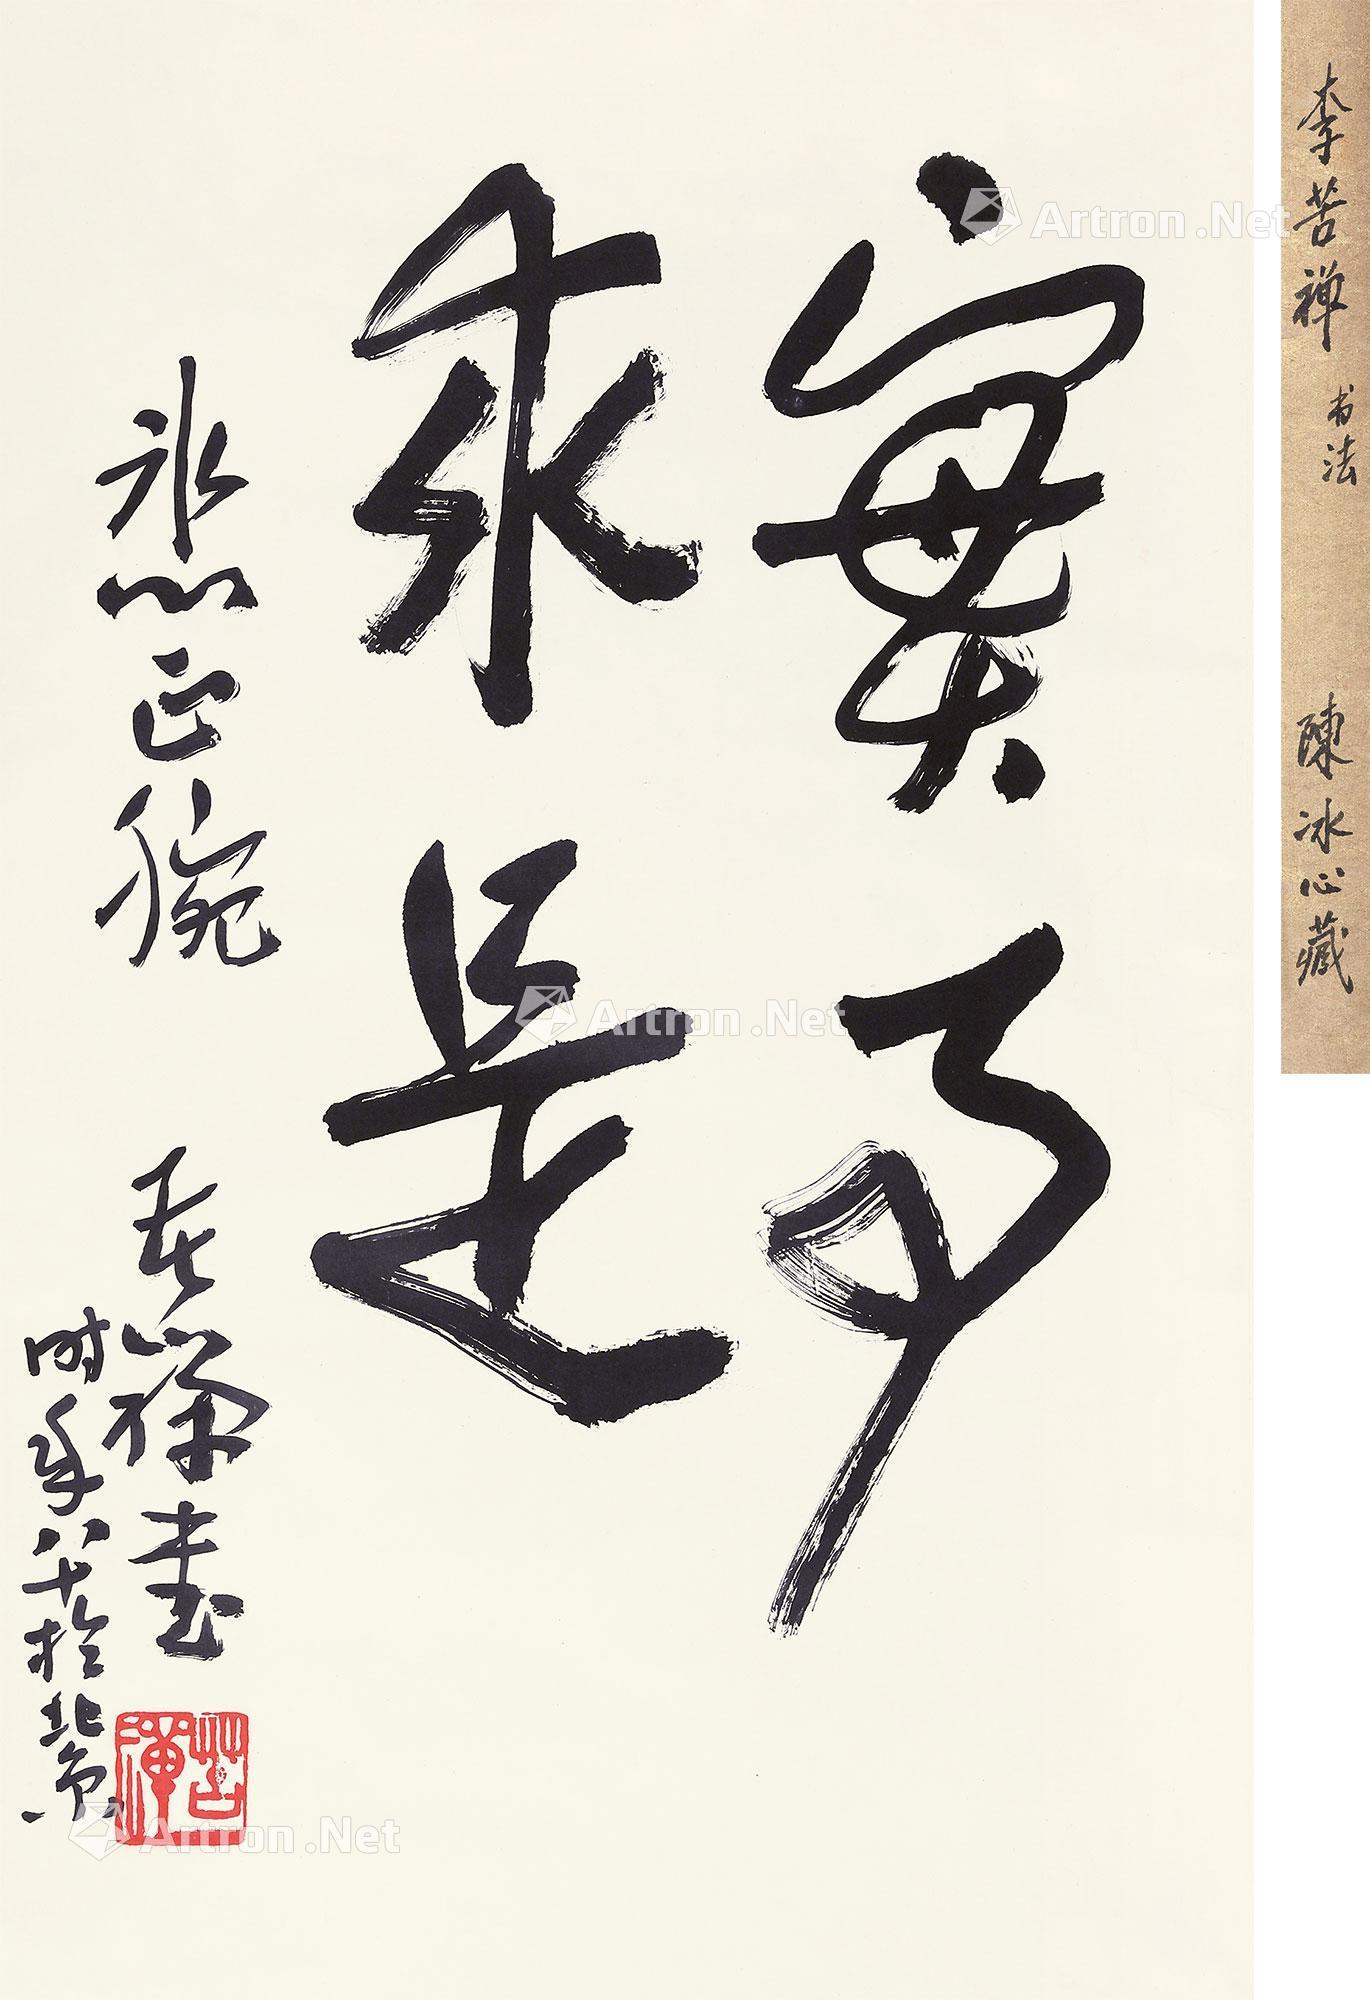 實事
求是
冰心正腕
苦禪書
时年八十於北京
苦禪
李苦禅 书法 陳冰心藏
Artron.Net
Artron.Net
Artron.Net